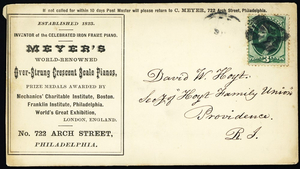 If not called for within 10 days Post Master will please return to C. MEYER, 722 Arch Street, Philadelphia.
ESTABLISHED 1823.
INVENTOR of the CELEBRATED IRON FRAME PIANO.
MEYER'S
WORLD-RENOWNED
Over-Strung Crescent Scale Pianos,
PRIZE MEDALS AWARDED BY
Mechanics' Charitable Institute, Boston.
Franklin Institute, Philadelphia.
World's Great Exhibition,
LONDON, ENGLAND.
No. 722 ARCH STREET,
PHILADELPHIA.
David W. Hoyt.
Sec'y of "Hoyt Family Union"
Providence.
R. I.